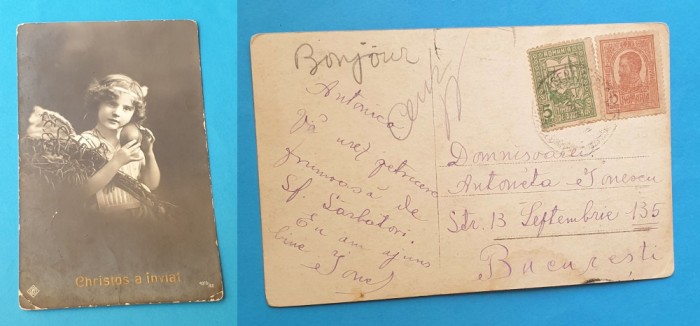 Christos a inviat
Bonjour
Antonica
Vă urez petrecere
frumoasă de
Sf. Sărbatori.
Eu am ajuns
bine Ionel
ROMANIA
5
15
Domnisoarei
Antoneta Ionescu
Str. 13 Septembrie 135
Bucureşti